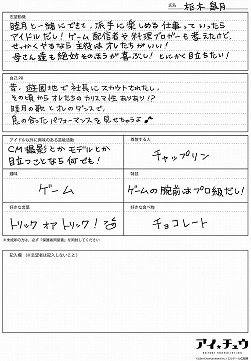 氏名 柏木 皐月
志望動機
睦月と一緒にできて、派手に楽しめる仕事っていったら
アイドルだし！ゲーム配信者や料理ブロガーも考えたけど、
せっかくやるなら主役はオレたちがいい！
母さん達も絶対そのほうが喜ぶし！とにかく目立ちたい！
自己PR
昔、遊園地で社長にスカウトされたし、
その頃からオレたちのカリスマ性ありあり!?
睦月の歌とオレのダンスで、
息の合ったパフォーマンスを見せちゃうよ
アイドル以外に興味のある芸能活動
CM撮影とかモデルとか
目立つことなら何でも！
尊敬する人
チャップリン
趣味
ゲーム
特技
ゲームの腕前はプロ級だし！
好きな言葉
トリック オア トリック！
好きな食べ物
チョコレート
※未成年の方は、必ず「保護者同意書」を同封してください
記入欄（※志望者は記入しないこと）
アイ★チュウ